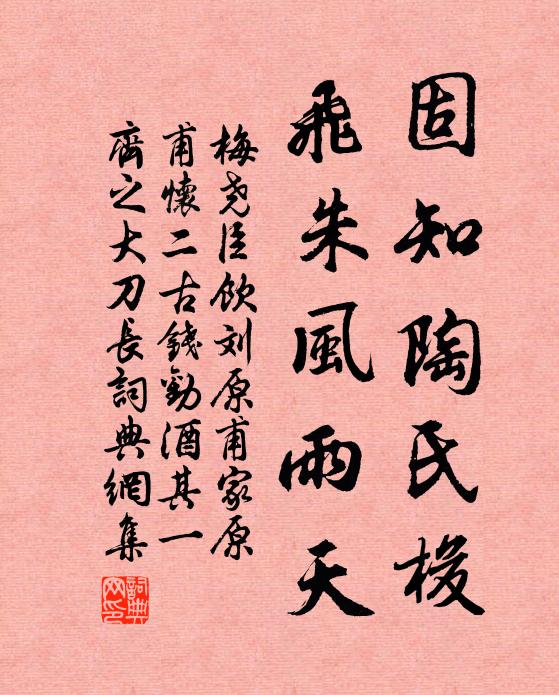 固知陶氏梭
飛朱風雨天
梅尧臣飲刘原甫家原
甫懷二古錢勸酒其一
齊之大刀長詞典網集
詞典网印